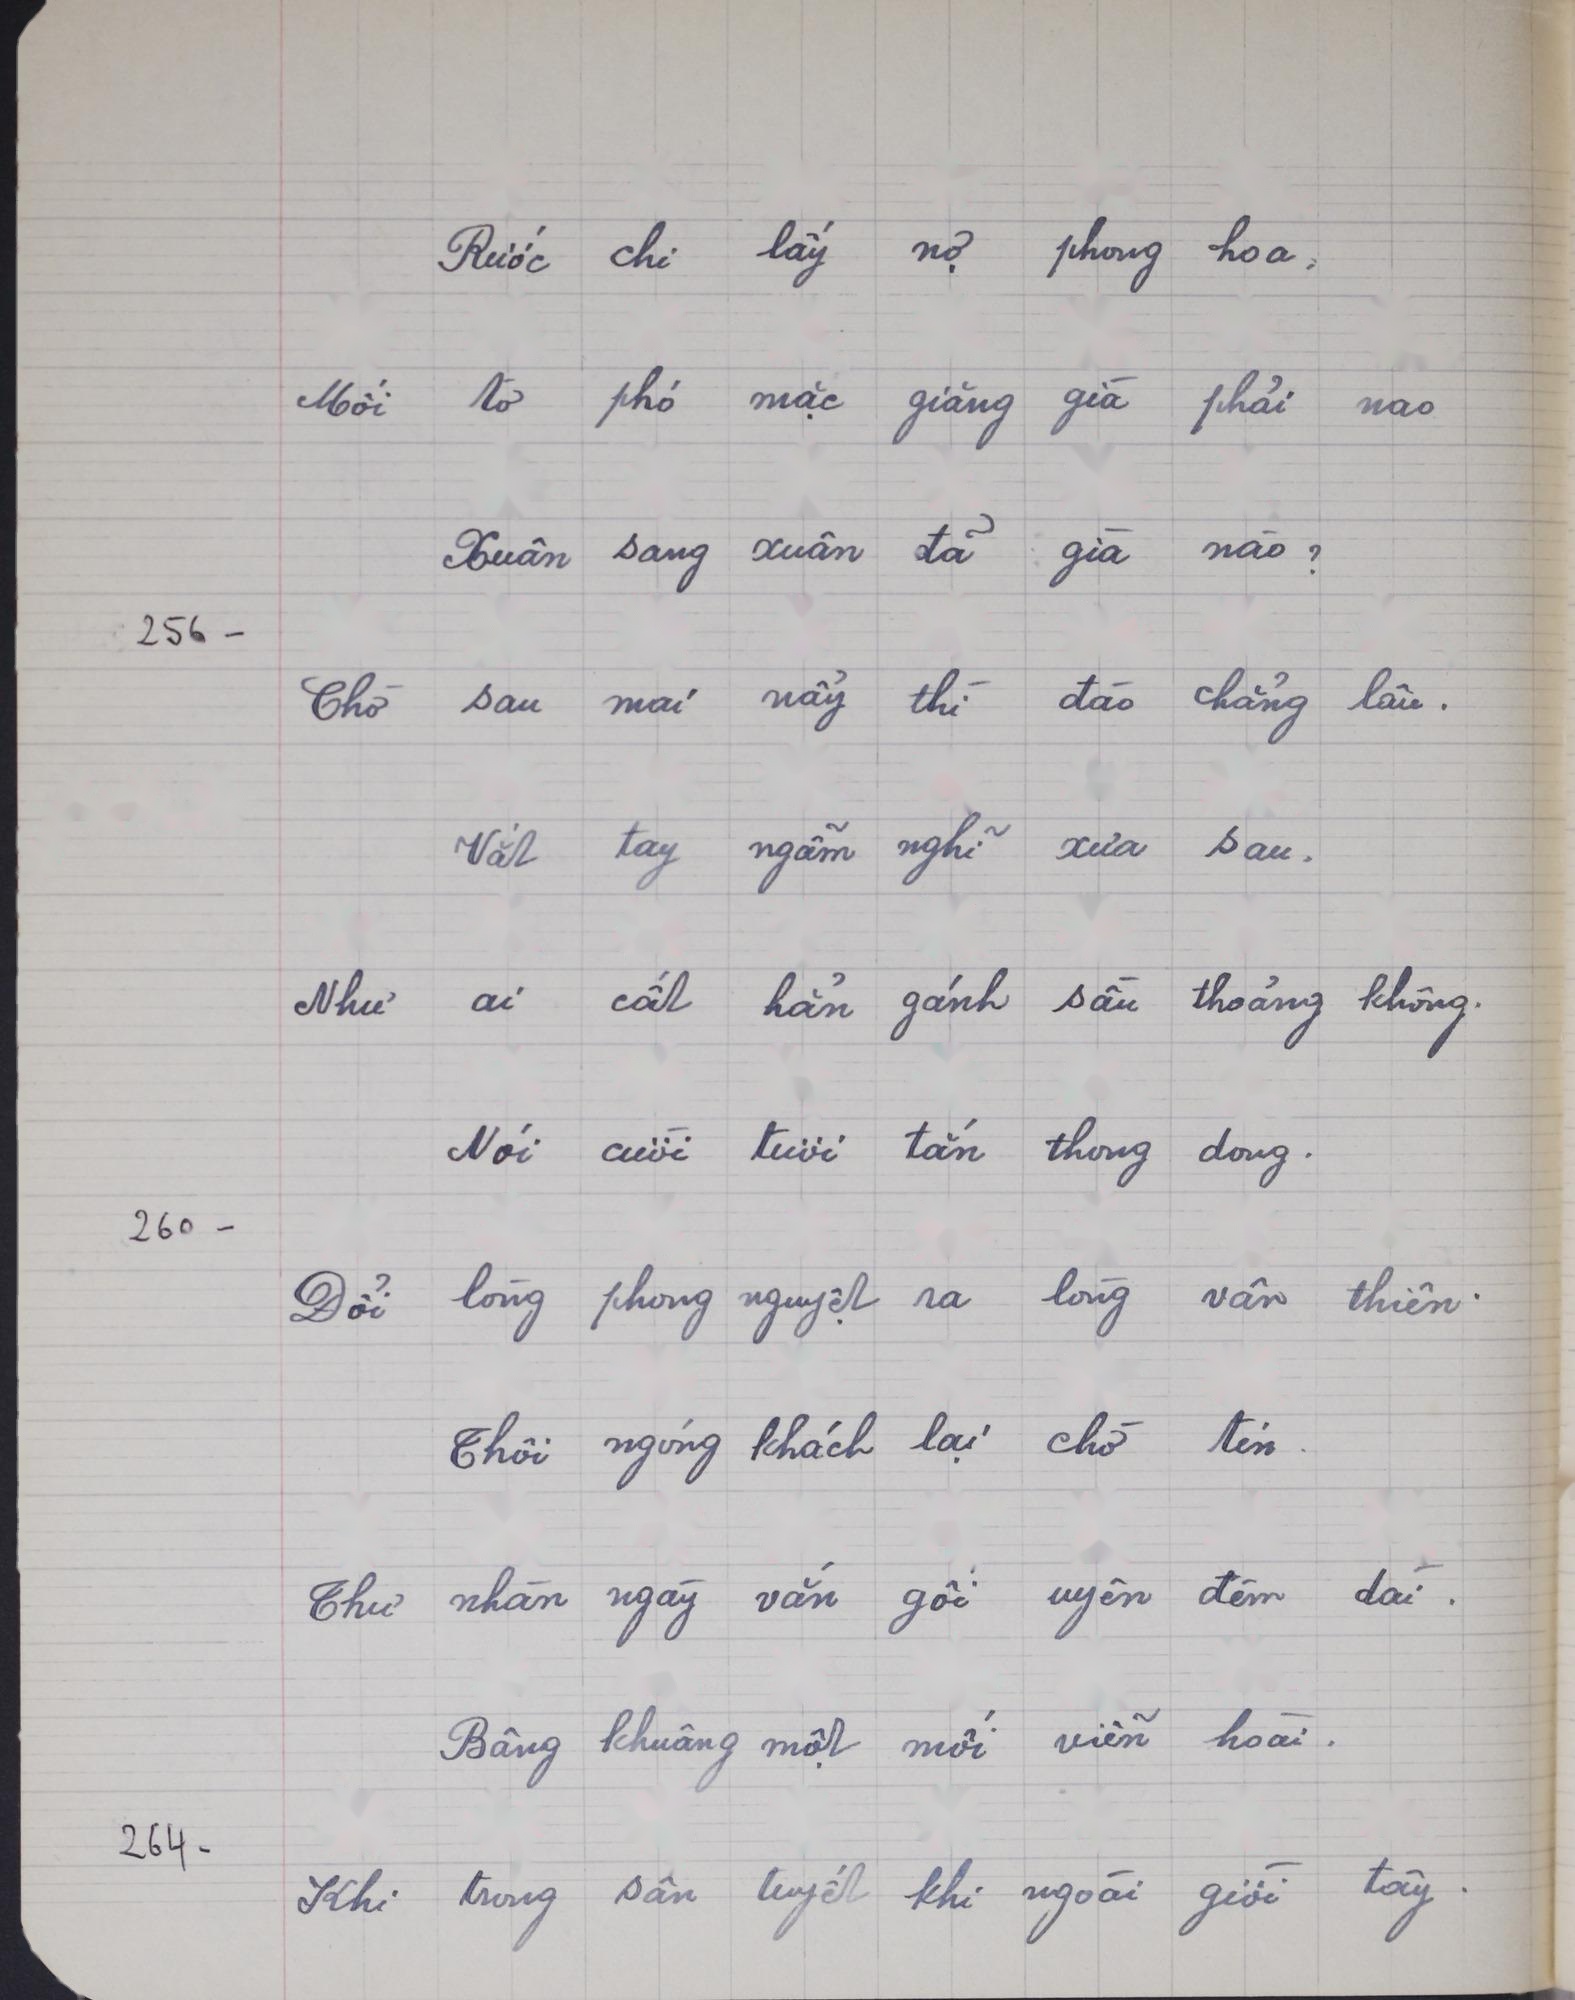 Rước chi lấy nợ phong hoa,
Mối tơ phó mặc giăng già phải nao
Xuân sang xuân đã già nào?
256 -
Chờ sau mai nẩy thì đào chẳng lâu.
Vắt tay ngẫm nghĩ xưa sau.
Như ai cất hẳn gánh sầu thoảng không.
Nói cười tươi tắn thong dong.
260 -
Đổi lòng phong nguyệt ra lòng vân thiên.
Thôi ngóng khách lại chờ tin.
Thư nhàn ngày vắn gối uyên đêm dài.
Bâng khuâng một mối viễn hoài.
264 -
Khi trong sân tuyết khi ngoài giời tây.